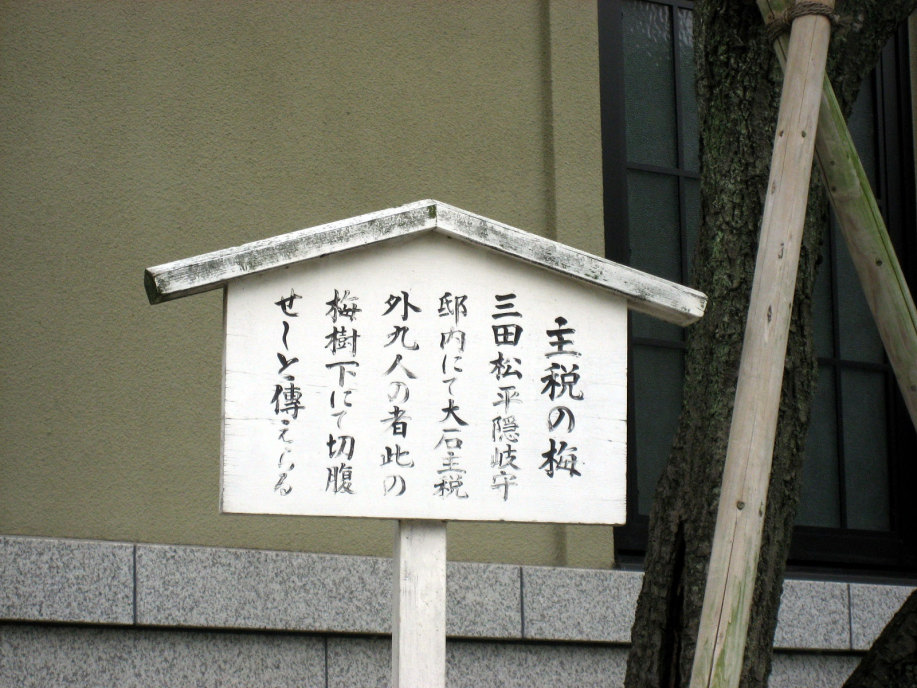 主税の梅
三田松平隠岐守
邸内にて大石主税
外九人の者此の
梅樹下にて切腹
せしと傳えらる